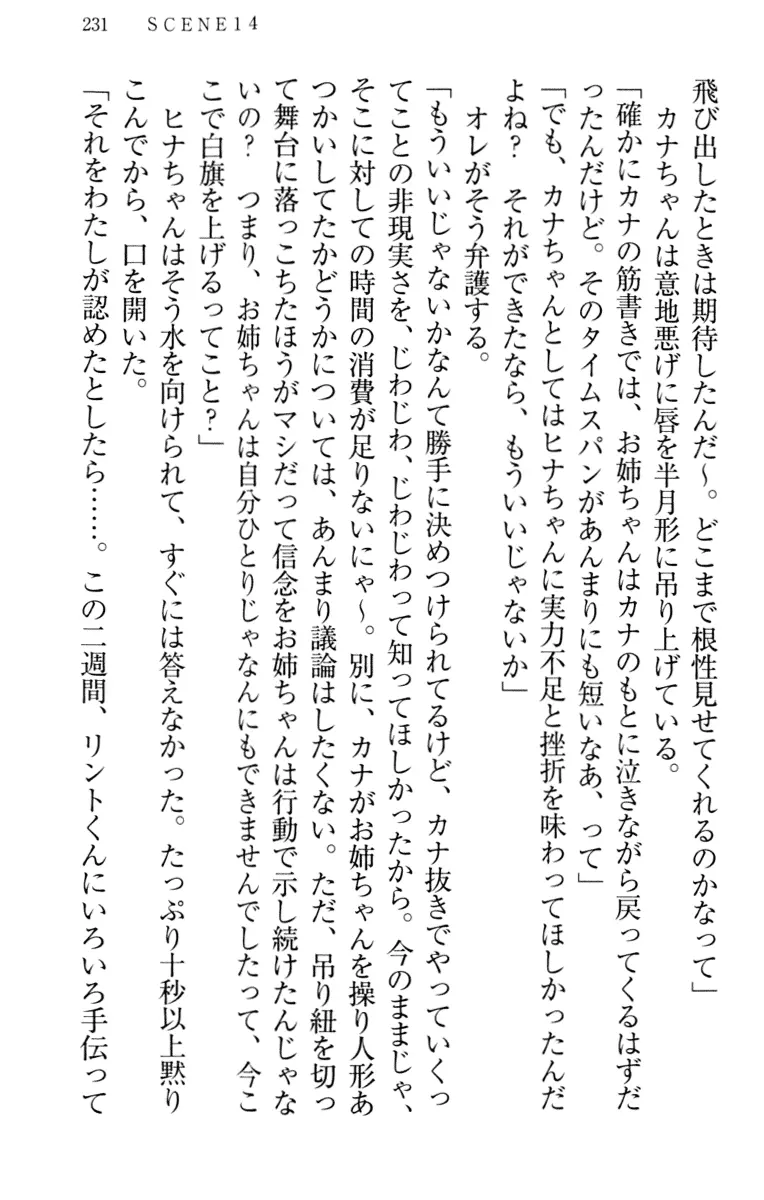 231　SCENE14
飛び出したときは期待したんだ～。どこまで根性見せてくれるのかなって」
　カナちゃんは意地悪げに唇を半月形に吊り上げている。
「確かにカナの筋書きでは、お姉ちゃんはカナのもとに泣きながら戻ってくるはずだ
ったんだけど。そのタイムスパンがあんまりにも短いなあ、って」
「でも、カナちゃんとしてはヒナちゃんに実力不足と挫折を味わってほしかったんだ
よね？　それができたなら、もういいじゃないか」
　オレがそう弁護する。
「もういいじゃないかなんて勝手に決めつけられてるけど、カナ抜きでやっていくっ
てことの非現実さを、じわじわ、じわじわって知ってほしかったから。今のままじゃ、
そこに対しての時間の消費が足りないにゃ～。別に、カナがお姉ちゃんを操り人形あ
つかいしてたかどうかについては、あんまり議論はしたくない。ただ、吊り紐を切っ
て舞台に落っこちたほうがマシだって信念をお姉ちゃんは行動で示し続けたんじゃな
いの？　つまり、お姉ちゃんは自分ひとりじゃなんにもできませんでしたって、今こ
こで白旗を上げるってこと？」
　ヒナちゃんはそう水を向けられて、すぐには答えなかった。たっぷり十秒以上黙り
こんでから、口を開いた。
「それをわたしが認めたとしたら……。この二週間、リントくんにいろいろ手伝って